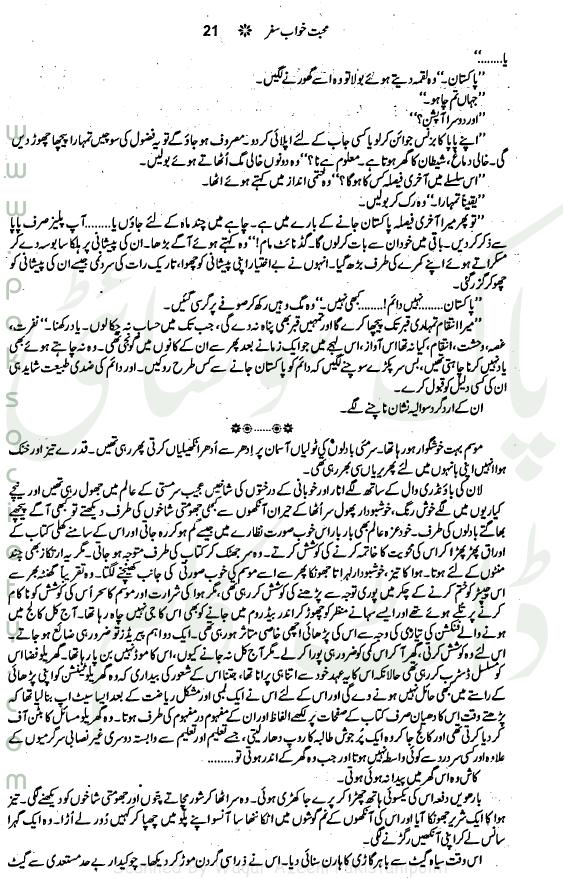 محبت خواب سفر ❋ 21
یا........‘‘
’’پاکستان۔‘‘ وہ لقمہ دیتے ہوئے بولا تو وہ اسے گھورنے لگیں۔
’’جہاں تم چاہو۔‘‘
’’اور دوسرا آپشن؟‘‘
’’اپنے پاپا کا بزنس جوائن کر لو یا کسی جاب کے لئے اپلائی کر دو۔ مصروف ہو جاؤ گے تو یہ فضول کی سوچیں تمہارا پیچھا چھوڑ دیں
گی۔ خالی دماغ، شیطان کا گھر ہوتا ہے۔ معلوم ہے نا؟‘‘ وہ دونوں خالی مگ اُٹھاتے ہوئے بولیں۔
’’اس سلسلے میں آخری فیصلہ کس کا ہو گا؟‘‘ وہ حتمی انداز میں کہتے ہوئے اٹھا۔
’’یقیناً تمہارا۔‘‘ وہ رک کر بولیں۔
’’تو پھر میرا آخری فیصلہ پاکستان جانے کے بارے میں ہے۔ چاہے میں چند ماہ کے لئے جاؤں یا........ آپ پلیز صرف پاپا
سے ذکر کر دیں۔ باقی میں خود ان سے بات کر لوں گا۔ گڈ نائٹ مام!‘‘ وہ کہتے ہوئے آگے بڑھا۔ ان کی پیشانی پر ہلکا سا بوسہ دے کر
مسکراتے ہوئے اپنے کمرے کی طرف بڑھ گیا۔ انہوں نے بے اختیار اپنی پیشانی کو چھوا، تاریک رات کی سرد نمی جیسے ان کی پیشانی کو
چھو کر گزر گئی۔
’’پاکستان........ نہیں دائم!........ کبھی نہیں۔‘‘ وہ مگ وہیں رکھ کر صوفے پر گر سی گئیں۔
’’میرا انتقام تمہاری قبر تک پیچھا کرے گا اور تمہیں قبر بھی پناہ نہ دے گی، جب تک میں حساب نہ چکا لوں۔ یاد رکھنا۔‘‘ نفرت،
غصہ، وحشت، انتقام، کیا نہ تھا اس آواز، اس لہجے میں جو ایک زمانے بعد پھر سے ان کے کانوں میں گونجی تھی۔ وہ نہ چاہتے ہوئے بھی
یاد نہیں کرنا چاہتی تھیں، بس سر پکڑے سوچنے لگیں کہ دائم کو پاکستان جانے سے کس طرح روکیں۔ اور دائم کی ضدی طبیعت شاید ہی
ان کی کسی دلیل کو قبول کرے۔
ان کے اردگرد سوالیہ نشان ناچنے لگے۔
❋❋......❋❋
موسم بہت خوشگوار ہو رہا تھا۔ سرمئی بادلوں کی ٹولیاں آسمان پر اِدھر سے اُدھر اٹکھیلیاں کرتی پھر رہی تھیں۔ قدرے تیز اور خنک
ہوا انہیں اپنی بانہوں میں لئے پھر یہاں سی بھر رہی تھی۔
لان کی باؤنڈری وال کے ساتھ لگے انار اور خوبانی کے درختوں کی شاخیں عجیب سرمستی کے عالم میں جھول رہی تھیں اور نیچے
کیاریوں میں لگے خوش رنگ، خوشبودار پھول سر اُٹھا کے حیران آنکھوں سے کبھی جھومتی شاخوں کی طرف دیکھتے تو کبھی آگے پیچھے
بھاگتے بادلوں کی طرف۔ خود عزہ عالم بھی بار بار اس خوب صورت نظارے میں جیسے گم ہو کر رہ جاتی اور اس کے سامنے کھلی کتاب کے
اوراق پھڑپھڑا کر اس کی محویت کا خاتمہ کرنے کی کوشش کرتے۔ وہ سر جھٹک کر کتاب کی طرف متوجہ ہو جاتی۔ مگر یہ ارتکاز بھی چند
منٹوں کے لئے ہوتا۔ ہوا کا تیز، خوشبودار لہراتا جھونکا پھر سے اسے موسم کی خوب صورتی کی جانب کھینچنے لگتا۔ وہ تقریباً گھنٹہ بھر سے
اس چیپٹر کو ختم کرنے کے چکر میں پوری توجہ سے پڑھنے کی کوشش کر رہی تھی مگر ہوا کی شرارت اور موسم کا سحر اُس کی کوشش کو ناکام
کرنے پر تلے ہوئے تھے اور ایسے سہانے منظر کو چھوڑ کر اندر بیڈروم میں جانے کو بھی اس کا جی نہیں چاہ رہا تھا۔ آج کل کالج میں
ہونے والے فنکشن کی تیاری کی وجہ سے اس کی پڑھائی اچھی خاصی متاثر ہو رہی تھی۔ ایک دو اہم پیریڈز تو ضرور ہی ضائع ہو جاتے۔
اس لئے وہ کوشش کرتی، گھر آ کر اس کمی کو ضرور ہی پورا کر لے۔ مگر آج کل نہ جانے کیوں، اس کا موڈ نہیں بن پا رہا تھا۔ گھریلو فضا اس
کو مسلسل ڈسٹرب کر رہی تھی حالانکہ اس کا یہ عہد خود سے اتنا ہی پرانا تھا، جتنا اس کے شعور کی بیداری کہ وہ گھریلو ٹینشن کو اپنی پڑھائی
کے راستے میں بھی حائل نہیں ہونے دے گی اور اس کے لئے اس نے ایک لمبی اور مشکل ریاضت کے بعد ایسا سیٹ اپ بنا لیا تھا کہ
پڑھتے وقت اس کا دھیان صرف کتاب کے صفحات پر لکھے الفاظ اور ان کے مفہوم در مفہوم کی طرف ہوتا۔ وہ گھریلو مسائل کا بٹن آف
کر دیا کرتی تھی اور کالج جا کر وہ ایک پُرجوش طالبہ کا روپ دھار لیتی، جسے تعلیم اور تعلیم سے وابستہ دوسری غیر نصابی سرگرمیوں کے
علاوہ اور کسی سردرد سے کوئی واسطہ نہیں ہوتا اور جب وہ گھر کے اندر ہوتی تو........
کاش وہ اس گھر میں پیدا نہ ہوئی ہوتی۔
بارھویں دفعہ اس کی یکسوئی ہاتھ چھڑا کر پرے جا کھڑی ہوئی۔ وہ سر اٹھا کر شور مچاتے پتوں اور جھومتی شاخوں کو دیکھنے لگی۔ تیز
ہوا کا ایک شریر جھونکا آیا اور اس کی آنکھوں کے نم گوشوں میں اٹکا ننھا سا آنسو اپنے پلو میں چھپا کر کہیں دُور لے اُڑا۔ وہ ایک گہرا
سانس لے کر اپنی آنکھیں رگڑنے لگی۔
اس وقت سیاہ گیٹ سے باہر گاڑی کا ہارن سنائی دیا۔ اس نے ذرا سی گردن موڑ کر دیکھا۔ چوکیدار بے حد مستعدی سے گیٹ